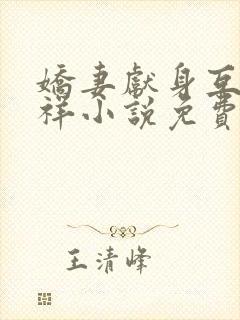 嬌妻獻身互
祥小說免費
王清峰